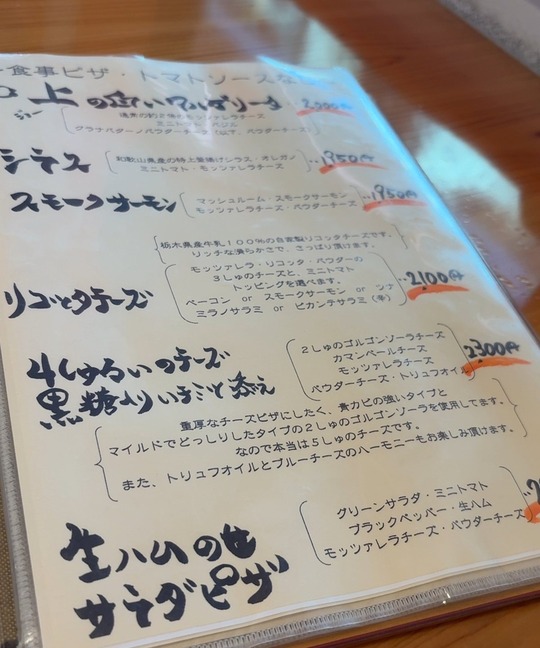 食事ピザ・トマトソースな
上の
2000円
ミニトマト・バジル
グラナパダーノパウダーチーズ（以下、パウダーチーズ）
シラス
和歌山県産の特上釜揚げシラス・オレガノ
ミニトマト・モッツァレラチーズ
1950円
スモークサーモン
マッシュルーム・スモークサーモン
モッツァレラチーズ・パウダーチーズ
1950円
栃木県産牛乳１００％の自家製リコッタチーズです。
リッチな滑らかさで、さっぱり頂けます。
リコッタチーズ
モッツァレラ・リコッタ・パウダーの
３しゅのチーズと、ミニトマト
トッピングを選べます。
ベーコン or スモークサーモン or ツナ
ミラノサラミ or ピカンテサラミ（辛）
2100円
4しゅるいのチーズ
黒糖 添え
２しゅのゴルゴンゾーラチーズ
カマンベールチーズ
モッツァレラチーズ
パウダーチーズ・トリュフオイル
2300円
重厚なチーズピザにしたく、青カビの強いタイプと
マイルドでどっしりしたタイプの２しゅのゴルゴンゾーラを使用してます。
なので本当は５しゅのチーズです。
また、トリュフオイルとブルーチーズのハーモニーもお楽しみ頂けます。
生ハムの
サラダピザ
グリーンサラダ・ミニトマト
ブラックペッパー・生ハム
モッツァレラチーズ・パウダーチーズ